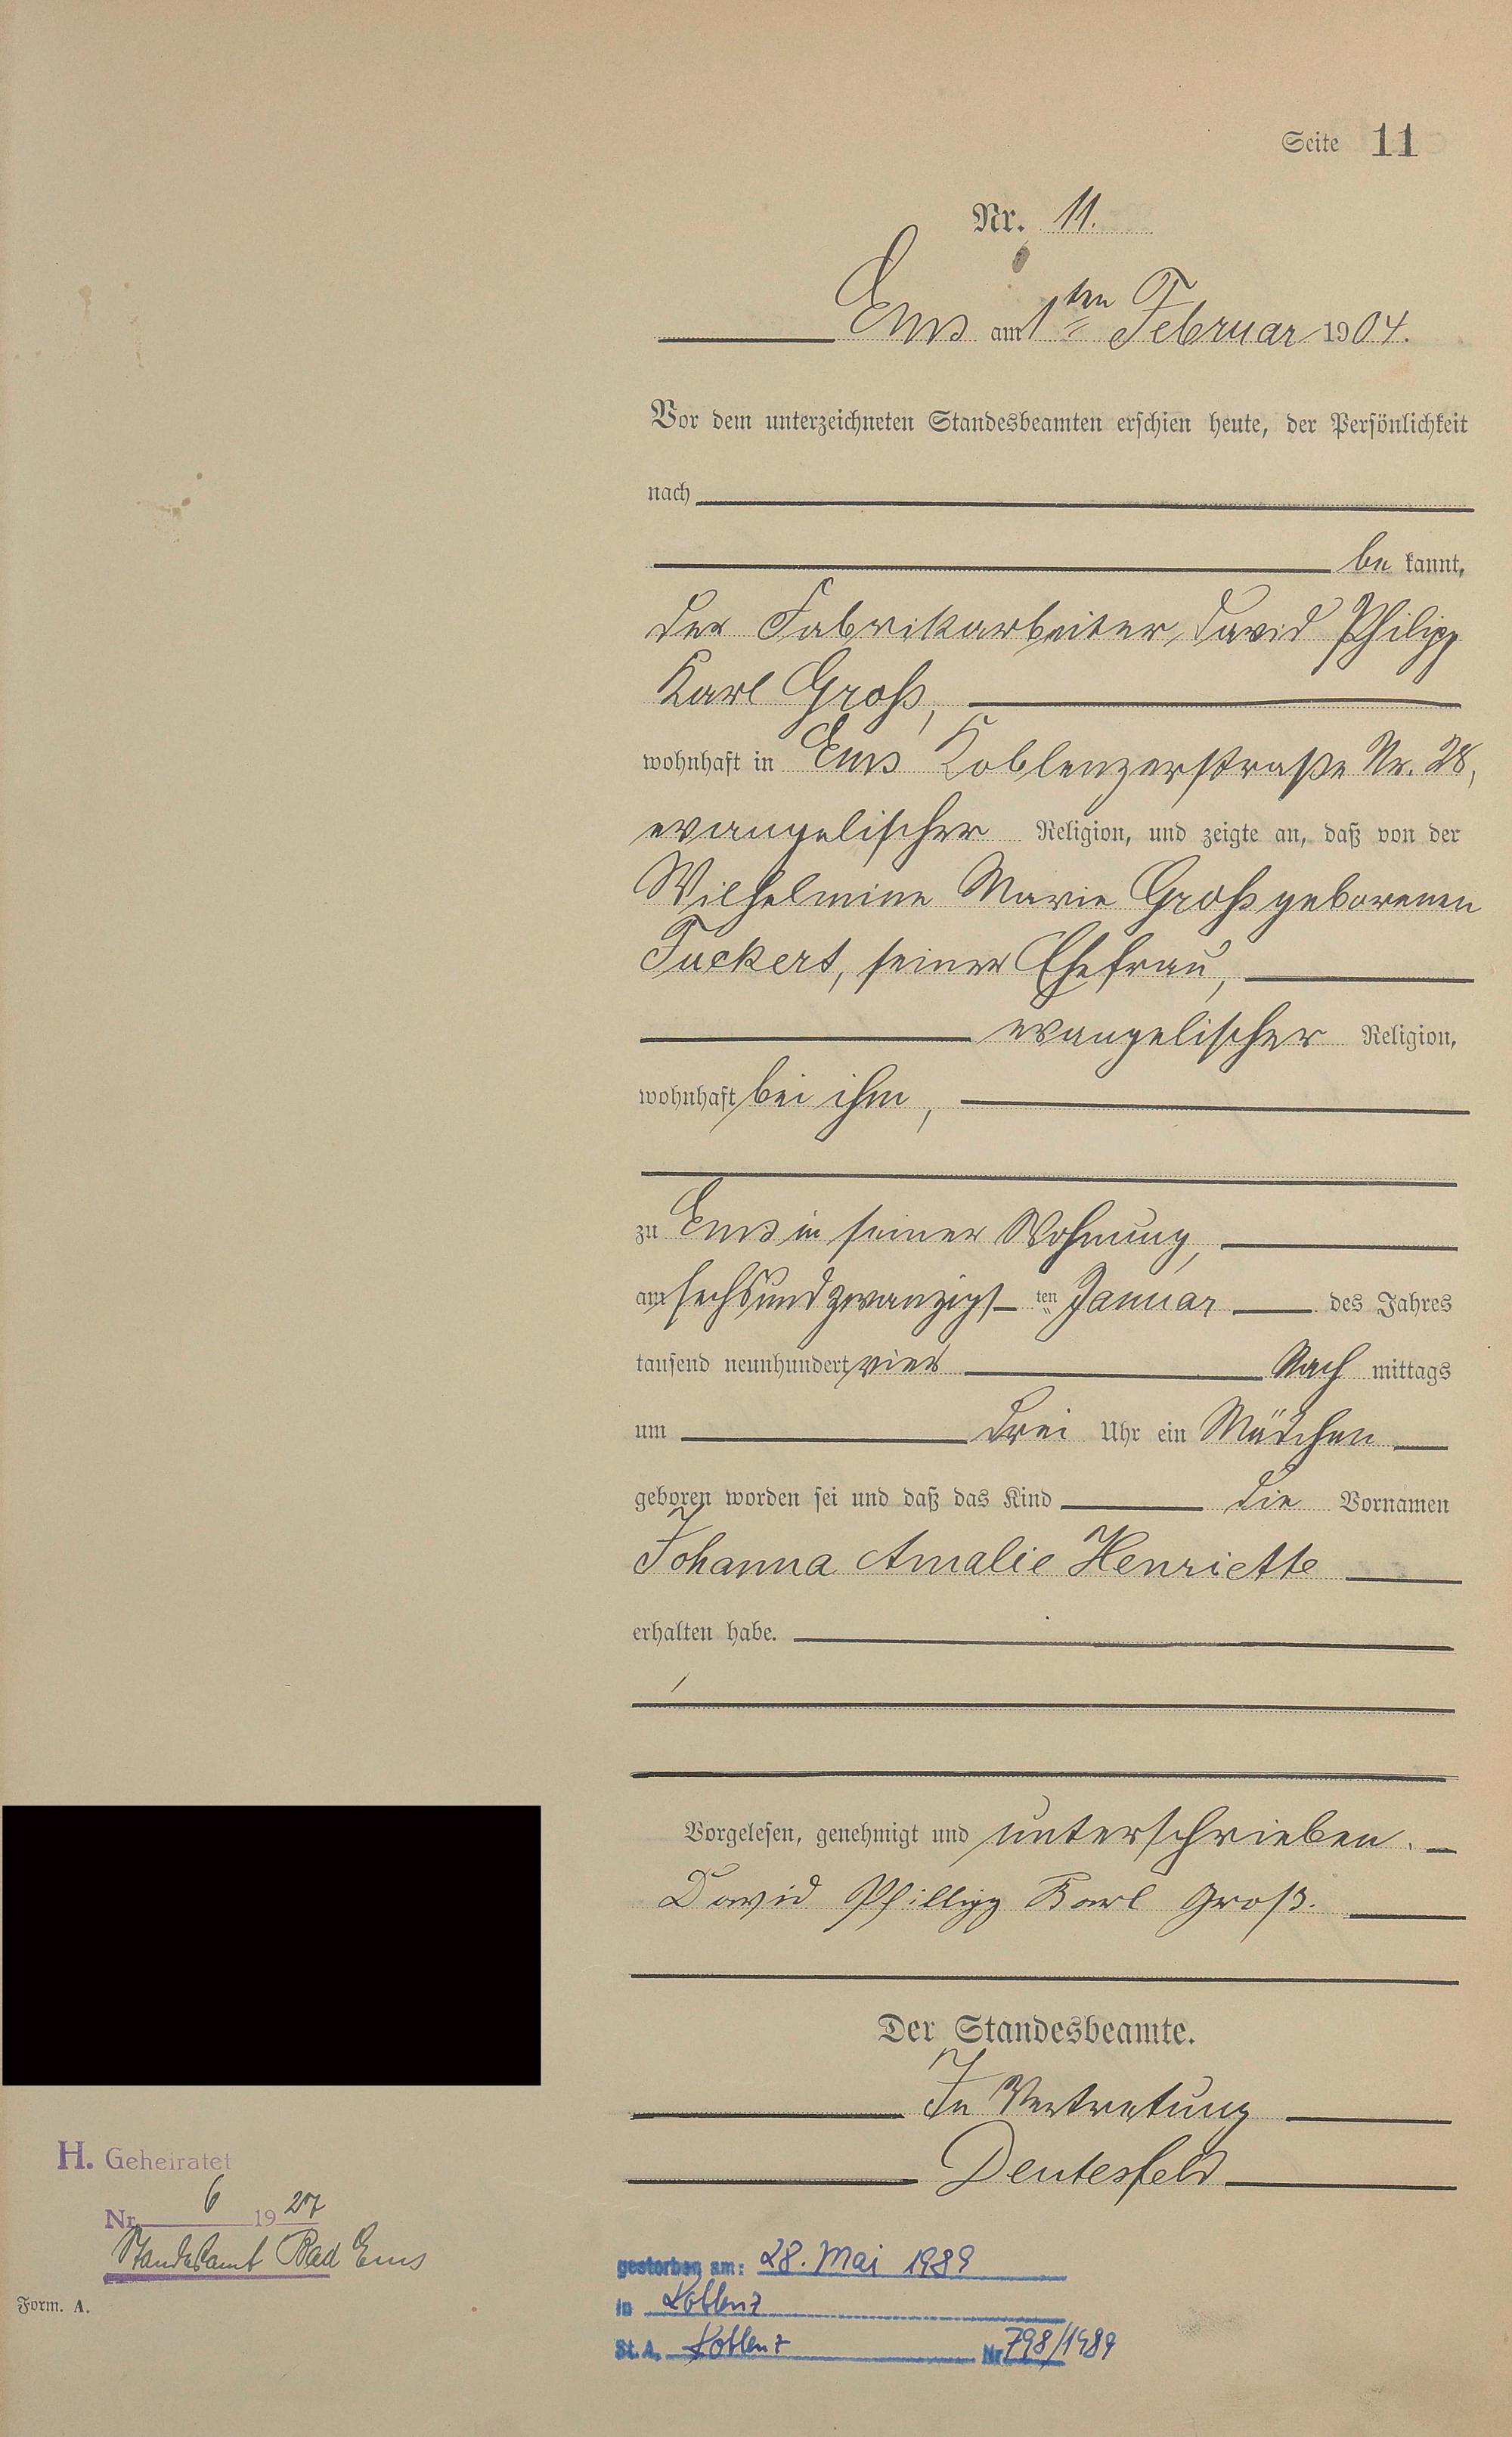 Seite 11
Nr. 11.
Ems am 1ten Februar 1904.
Vor dem unterzeichneten Standesbeamten erschien heute, der Persönlichkeit
nach
be kannt,
der Fabrikarbeiter, David Philipp
Karl Groß,
wohnhaft in Ems Koblenzerstraße Nr. 28,
evangelischer Religion, und zeigte an, daß von der
Wilhelmine Marie Groß geborenen
Tuckert, seiner Ehefrau,
evangelischer Religion,
wohnhaft bei ihm,
zu Ems in seiner Wohnung,
am sechsundzwanzigsten Januar des Jahres
tausend neunhundert vier Nach mittags
um drei Uhr ein Mädchen
geboren worden sei und daß das Kind die Vornamen
Johanna Amalie Henriette
erhalten habe.
Vorgelesen, genehmigt und unterschrieben.
David Phillipp Karl Groß.
Der Standesbeamte.
In Vertretung
Deutesfeld
H. Geheiratet
Nr. 6 1927
Standesamt Bad Ems
Form. A.
gestorben am: 28. Mai 1989
in Koblenz
St. A. Koblenz Nr. 798/1989